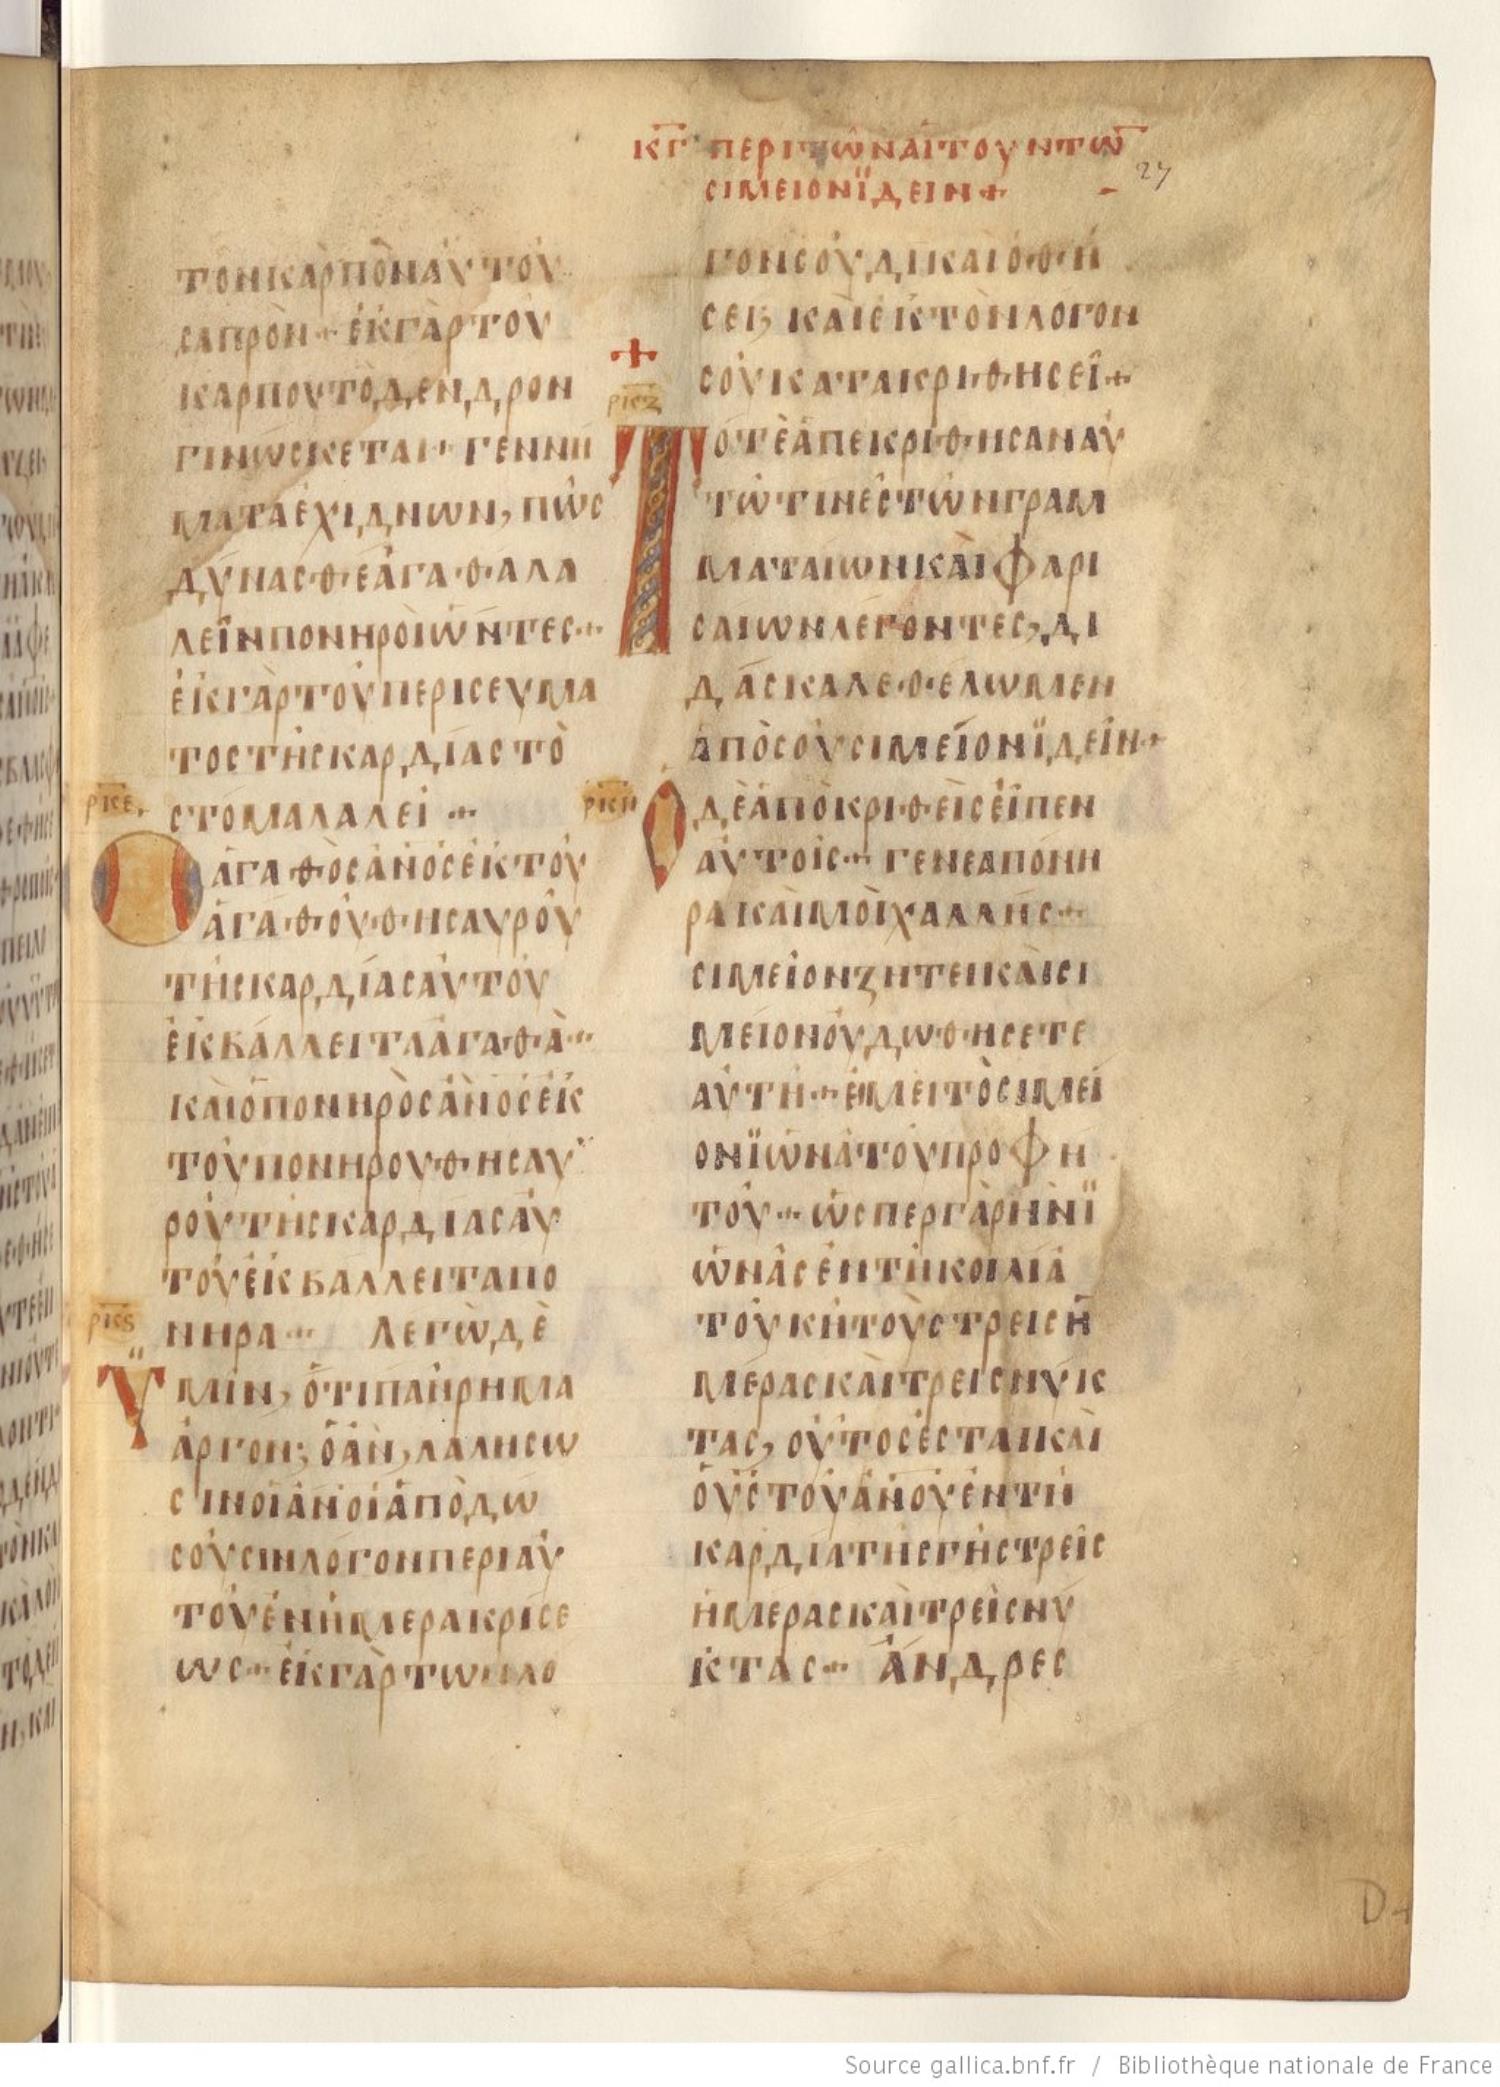 ΚΓ ΠΕΡΙΤΩΝΑΙΤΟΥΝΤΩ
ΣΙΜΕΙΟΝΪΔΕΙΝ+
27
ΤΟΝΚΑΡΠΟΝΑΥΤΟΥ
ΣΑΠΡΟΝ·ΕΚΓΑΡΤΟΥ
ΚΑΡΠΟΥΤΟΔΕΝΔΡΟΝ
ΓΙΝΩΣΚΕΤΑΙ·ΓΕΝΝΗ
ΜΑΤΑΕΧΙΔΝΩΝ,ΠΩΣ
ΔΥΝΑΣΘΕΑΓΑΘΑΛΑ
ΛΕΙΝΠΟΝΗΡΟΙΩΝΤΕΣ·
ΕΚΓΑΡΤΟΥΠΕΡΙΣΕΥΜΑ
ΤΟΣΤΗΣΚΑΡΔΙΑΣΤΟ
ΡΚΕ
ΣΤΟΜΑΛΑΛΕΙ·
Ο ΑΓΑΘΟΣΑΝΟΣΕΚΤΟΥ
ΑΓΑΘΟΥΘΗΣΑΥΡΟΥ
ΤΗΣΚΑΡΔΙΑΣΑΥΤΟΥ
ΕΚΒΑΛΛΕΙΤΑΑΓΑΘΑ·
ΚΑΙΟΠΟΝΗΡΟΣΑΝΟΣΕΚ
ΤΟΥΠΟΝΗΡΟΥΘΗΣΑΥ
ΡΟΥΤΗΣΚΑΡΔΙΑΣΑΥ
ΤΟΥΕΚΒΑΛΛΕΙΤΑΠΟ
ΡΚϚ
ΝΗΡΑ· ΛΕΓΩΔΕ
ΥΜΙΝ,ΟΤΙΠΑΝΡΗΜΑ
ΑΡΓΟΝ;ΟΑΝ,ΛΑΛΗΣΩ
ΣΙΝΟΙΑΝΟΙΑΠΟΔΩ
ΣΟΥΣΙΝΛΟΓΟΝΠΕΡΙΑΥ
ΤΟΥΕΝΗΜΕΡΑΚΡΙΣΕ
ΩΣ·ΕΚΓΑΡΤΩΝΛΟ
ΓΟΝΣΟΥΔΙΚΑΙΟΘΗ
ΣΕΙ; ΚΑΙΕΚΤΟΝΛΟΓΟΝ
ΣΟΥΚΑΤΑΚΡΙΘΗΣΕΙ·
+
ΡΚΖ
ΤΟΤΕΑΠΕΚΡΙΘΗΣΑΝΑΥ
ΤΩΤΙΝΕΣΤΩΝΓΡΑΜ
ΜΑΤΑΙΩΝΚΑΙΦΑΡΙ
ΣΑΙΩΝΛΕΓΟΝΤΕΣ,ΔΙ
ΔΑΣΚΑΛΕΘΕΛΩΜΕΝ
ΑΠΟΣΟΥΣΙΜΕΙΟΝΪΔΕΙΝ·
ΡΚΗ
Ο ΔΕΑΠΟΚΡΙΘΕΙΣΕΙΠΕΝ
ΑΥΤΟΙΣ·ΓΕΝΕΑΠΟΝΗ
ΡΑΚΑΙΜΟΙΧΑΛΛΗΣ·
ΣΙΜΕΙΟΝΖΗΤΕΙΚΑΙΣΙ
ΜΕΙΟΝΟΥΔΩΘΗΣΕΤΕ
ΑΥΤΗ·ΕΙΜΕΙΤΟΣΙΜΕΙ
ΟΝΪΩΝΑΤΟΥΠΡΟΦΗ
ΤΟΥ·ΩΣΠΕΡΓΑΡΗΝΪ
ΩΝΑΣΕΝΤΗΚΟΙΛΙΑ
ΤΟΥΚΗΤΟΥΣΤΡΕΙΣΗ
ΜΕΡΑΣΚΑΙΤΡΕΙΣΝΥΚ
ΤΑΣ,ΟΥΤΟΣΕΣΤΑΙΚΑΙ
ΟΥΣΤΟΥΑΝΟΥΕΝΤΗ
ΚΑΡΔΙΑΤΗΣΓΗΣΤΡΕΙΣ
ΗΜΕΡΑΣΚΑΙΤΡΕΙΣΝΥ
ΚΤΑΣ· ΑΝΔΡΕΣ
Source gallica.bnf.fr / Bibliothèque nationale de France